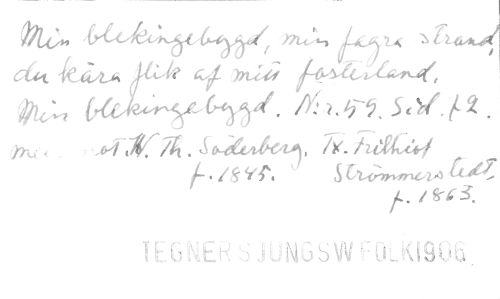 Min blekingebygd, min fagra strand,
du kära flik af mitt fosterland.
Min blekingebygd. N:r. 59. Sid. 72.
N. Th. Söderberg. Tx. Frithiof
f. 1845. Strömmerstedt,
f. 1863.
TEGNER SJUNG SW FOLK 1906